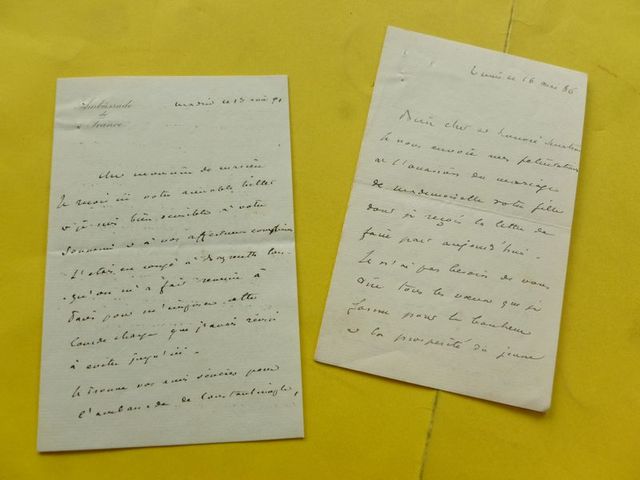 Ambassade
de
France
Madrid le 13
Au moment de
Je reçois ici votre aimable billet
suis bien sensible à votre
souvenir et à vos affectueux compliments
J'étais en congé à lors-
qu'on m'a fait revenir à
Paris pour m'imposer cette
lourde charge que j'avais réussi
à éviter jusqu'ici.
Je trouve vos amis sévères pour
l'ambassade de Constantinople,
le 16 mai 86
Bien cher et honoré
Je vous envoie mes félicitations
à l'occasion du mariage
de Mademoiselle votre fille
dont je reçois la lettre de
faire part aujourd'hui.
Je n'ai pas besoin de vous
dire tous les vœux que je
forme pour le bonheur
et la prospérité du jeune